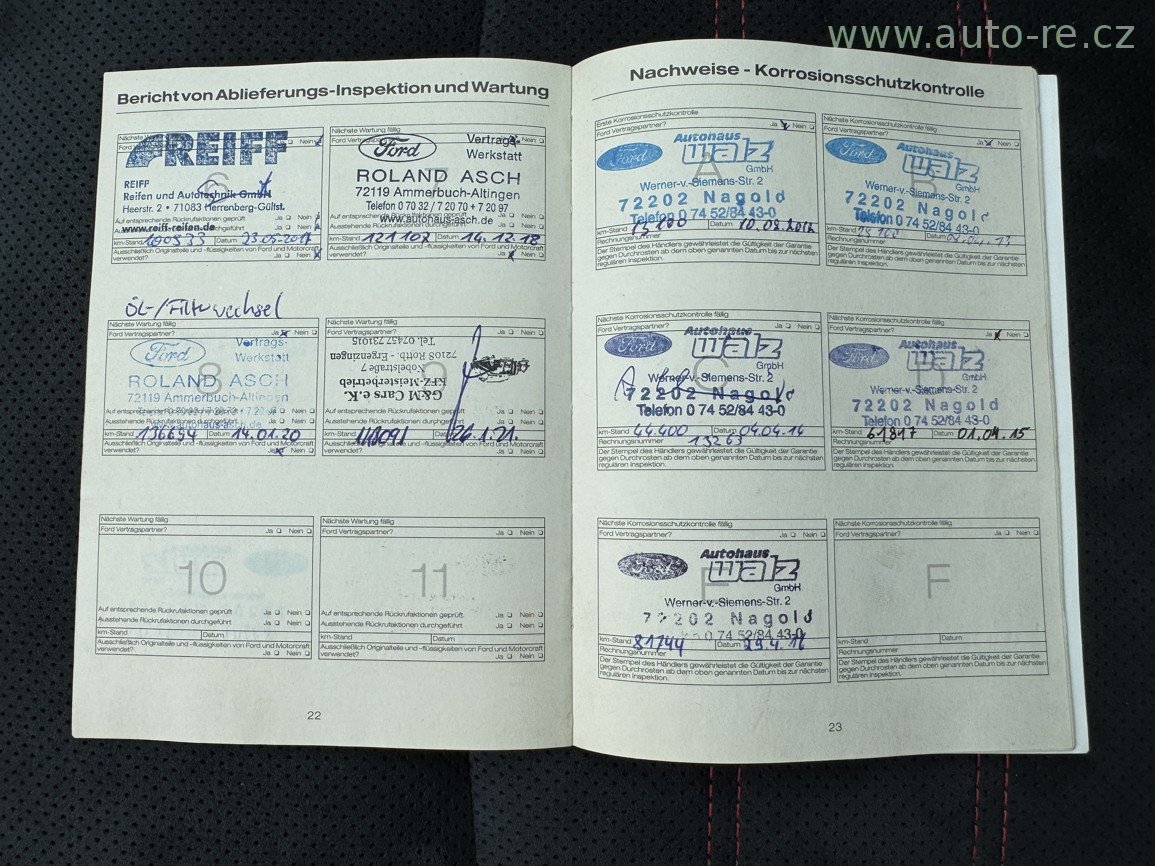 www.auto-re.cz
Bericht von Ablieferungs-Inspektion und Wartung
REIFF
6
REIFF
Reifen und Autotechnik GmbH
Heerstr. 2 • 71083 Herrenberg-Gültst.
Auf entsprechende Rückrufaktionen geprüft Ja Nein
www.reiff-reifen.de
km-Stand Datum
Ausschließlich Originalteile und -flüssigkeiten von Ford und Motorcraft
verwendet? Ja Nein
Nächste Wartung fällig
Ford Vertragspartner? Ja Nein
Ford Vertrags-
Werkstatt
ROLAND ASCH
72119 Ammerbuch-Altingen
Telefon 0 70 32 / 7 20 70 + 7 20 97
Auf entsprechende Rückrufaktionen geprüft Ja Nein
www.autohaus-asch.de
km-Stand 121102 Datum 14.12.18
Ausschließlich Originalteile und -flüssigkeiten von Ford und Motorcraft
verwendet? Ja Nein
Öl-/Filterwechsel
Nächste Wartung fällig
Ford Vertragspartner? Ja Nein
Ford Vertrags-
Werkstatt
8
ROLAND ASCH
72119 Ammerbuch-Altingen
Auf entsprechende Rückrufaktionen geprüft Ja Nein
km-Stand 136694 Datum 14.01.20
Ausschließlich Originalteile und -flüssigkeiten von Ford und Motorcraft
verwendet? Ja Nein
Nächste Wartung fällig
Ford Vertragspartner? Ja Nein
9
G&M Cars e.K.
KFZ-Meisterbetrieb
72108 Rottb. - Ergenzingen
Tel. 07457 731015
Auf entsprechende Rückrufaktionen geprüft Ja Nein
Ausstehende Rückrufaktionen durchgeführt Ja Nein
km-Stand Datum 26.1.21.
Ausschließlich Originalteile und -flüssigkeiten von Ford und Motorcraft
verwendet? Ja Nein
Nächste Wartung fällig
Ford Vertragspartner? Ja Nein
10
Auf entsprechende Rückrufaktionen geprüft Ja Nein
Ausstehende Rückrufaktionen durchgeführt Ja Nein
km-Stand Datum
Ausschließlich Originalteile und -flüssigkeiten von Ford und Motorcraft
verwendet? Ja Nein
Nächste Wartung fällig
Ford Vertragspartner? Ja Nein
11
Auf entsprechende Rückrufaktionen geprüft Ja Nein
Ausstehende Rückrufaktionen durchgeführt Ja Nein
km-Stand Datum
Ausschließlich Originalteile und -flüssigkeiten von Ford und Motorcraft
verwendet? Ja Nein
22
Nachweise - Korrosionsschutzkontrolle
Erste Korrosionsschutzkontrolle
Ford Vertragspartner? Ja Nein
Ford Autohaus
walz
GmbH
A
Werner-v.-Siemens-Str. 2
72202 Nagold
Telefon 0 74 52/84 43-0
km-Stand Datum
Rechnungsnummer
Der Stempel des Händlers gewährleistet die Gültigkeit der Garantie
gegen Durchrosten ab dem oben genannten Datum bis zur nächsten
regulären Inspektion.
Nächste Korrosionsschutzkontrolle fällig
Ford Vertragspartner? Ja Nein
Ford Autohaus
walz
GmbH
B
Werner-v.-Siemens-Str. 2
72202 Nagold
Telefon 0 74 52/84 43-0
km-Stand Datum
Rechnungsnummer
Der Stempel des Händlers gewährleistet die Gültigkeit der Garantie
gegen Durchrosten ab dem oben genannten Datum bis zur nächsten
regulären Inspektion.
Nächste Korrosionsschutzkontrolle fällig
Ford Vertragspartner? Ja Nein
Ford Autohaus
walz
GmbH
C
Werner-v.-Siemens-Str. 2
72202 Nagold
Telefon 0 74 52/84 43-0
km-Stand 44.400 Datum 04.04.14
Rechnungsnummer 13263
Der Stempel des Händlers gewährleistet die Gültigkeit der Garantie
gegen Durchrosten ab dem oben genannten Datum bis zur nächsten
regulären Inspektion.
Nächste Korrosionsschutzkontrolle fällig
Ja Nein
Ford Autohaus
walz
GmbH
Werner-v.-Siemens-Str. 2
72202 Nagold
Telefon 0 74 52/84 43-0
km-Stand 61817 Datum 01.04.15
Rechnungsnummer
Der Stempel des Händlers gewährleistet die Gültigkeit der Garantie
gegen Durchrosten ab dem oben genannten Datum bis zur nächsten
regulären Inspektion.
Nächste Korrosionsschutzkontrolle fällig
Ford Vertragspartner? Ja Nein
Ford Autohaus
walz
GmbH
Werner-v.-Siemens-Str. 2
72202 Nagold
0 74 52/84 43-0
km-Stand 81744 Datum 29.4.16
Rechnungsnummer
Der Stempel des Händlers gewährleistet die Gültigkeit der Garantie
gegen Durchrosten ab dem oben genannten Datum bis zur nächsten
regulären Inspektion.
Nächste Korrosionsschutzkontrolle fällig
Ford Vertragspartner? Ja Nein
F
km-Stand Datum
Rechnungsnummer
Der Stempel des Händlers gewährleistet die Gültigkeit der Garantie
gegen Durchrosten ab dem oben genannten Datum bis zur nächsten
regulären Inspektion.
23